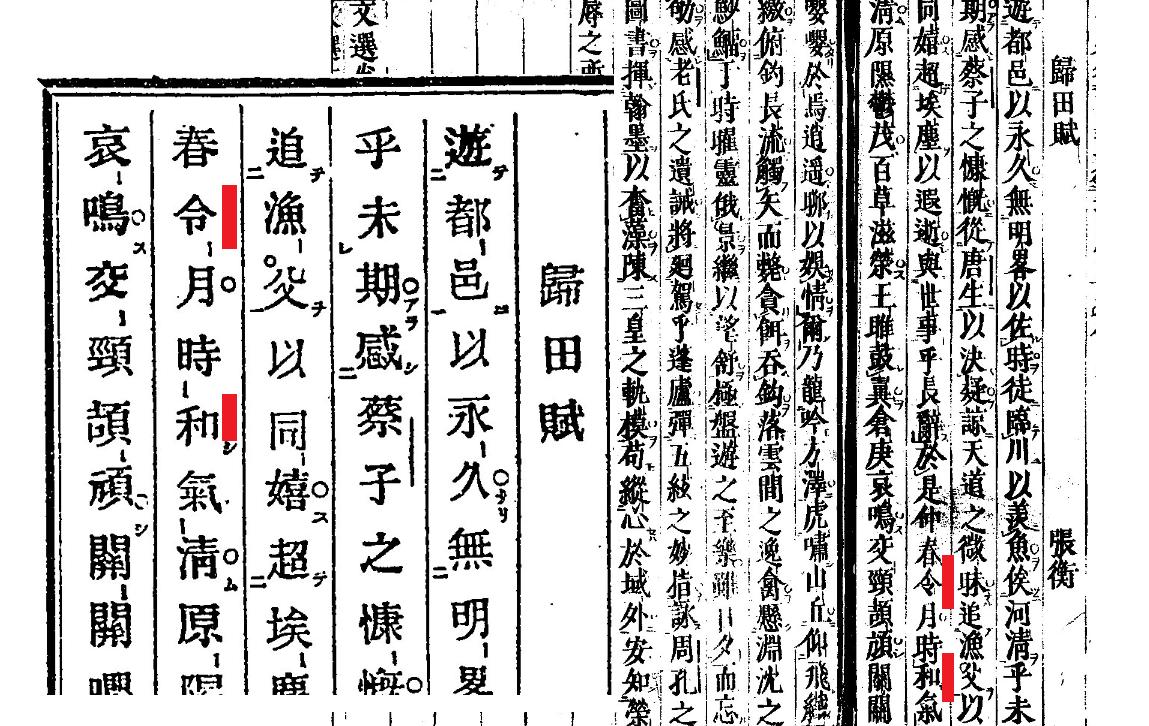 歸田賦 張衡
遊都邑以永久無明畧以佐時徒臨川以羨魚俟河清乎未
期感蔡子之慷慨從唐生以決疑諒天道之微昧追漁父以
同嬉超埃塵以遐逝與世事乎長辭於是仲春令月時和氣
清原隰鬱茂百草滋榮王雎鼓翼倉庚哀鳴交頸頡頏關關
嚶嚶於焉逍遙聊以娛情爾乃龍吟方澤虎嘯山丘仰飛纖
繳俯釣長流觸矢而斃貪餌吞鈎落雲間之逸禽懸淵沈之
魦鰡于時曜靈俄景繼以望舒極盤遊之至樂雖日夕而忘
劬感老氏之遺誡將廻駕乎蓬廬彈五絃之妙指詠周孔之
圖書揮翰墨以奮藻陳三皇之軌模苟縱心於域外安知榮
辱之所
文選
歸田賦
遊都邑以永久無明畧
乎未期感蔡子之慷慨
追漁父以同嬉超埃塵
春令月時和氣清原隰
哀鳴交頸頡頏關關嚶